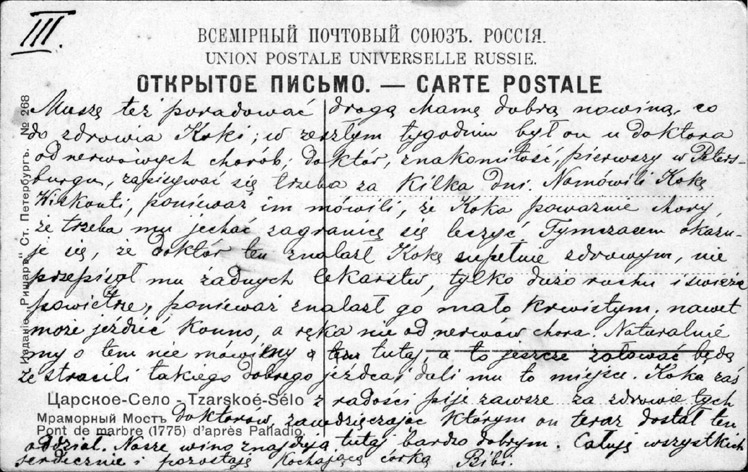 III.
ВСЕМІРНЫЙ ПОЧТОВЫЙ СОЮЗЪ. РОССІЯ.
UNION POSTALE UNIVERSELLE RUSSIE.
ОТКРЫТОЕ ПИСЬМО. — CARTE POSTALE
Muszę też poradować drogą Mamę dobrą nowiną, co
do zdrowia Koki; w zeszłym tygodniu był on u doktora
od nerwowych chorób; doktór, znakomitość, pierwszy w Peters-
burgu, zapisywać się trzeba za kilka dni. Namówili Kokę
ponieważ im mówili, że Koka poważnie chory,
że trzeba mu jechać zagranicę się leczyć. Tymczasem okazu-
je się, że doktór ten znalazł Kokę zupełnie zdrowym, nie
przepisał mu żadnych lekarstw, tylko dużo ruchu i świeże
powietrze, ponieważ znalazł go mało krwistym, nawet
może jeździć konno, a ręka nie od nerwów chora. Naturalnie
my o tem nie mówimy tutaj, a to jeszcze żałować będą
że stracili takiego dobrego jeźdźca i dali mu to miejsce. Koka zaś
Царское-Село - Tzarskoé-Sélo z radości pije zawsze za zdrowie tych
Мраморный Мостъ doktorów, zawdzięczając którym on teraz dostał ten
Pont de marbre (1775) d'après Palladio.
oddział. Nasze wina znajdują tutaj bardzo dobrym. Całuję wszystkich
serdecznie i pozostaję kochającą córką Bibi.
Изданіе „Ришаръ" Ст. Петербургъ. № 268